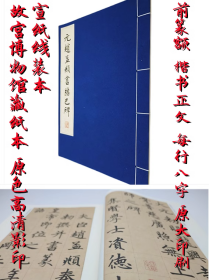 前篆额 楷书正文 每行八字 原大印刷
宣纸线装本
故宫博物馆藏纸本 原色高清影印
元趙孟頫書膽巴碑
集賢學士資德